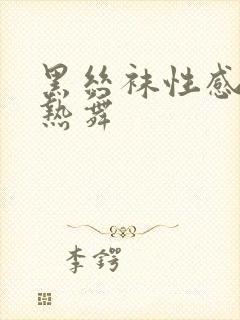 黑丝袜性感
热舞
李锷